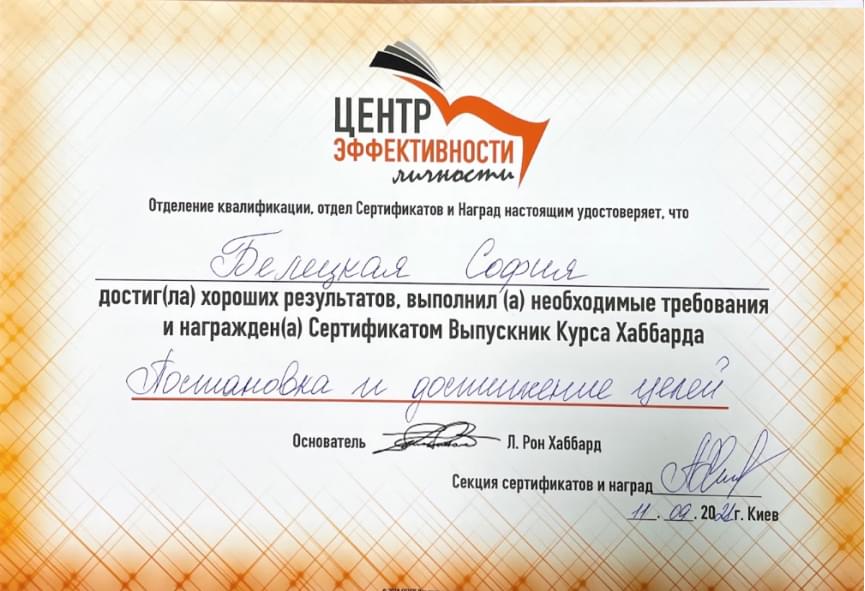 ЦЕНТР
ЭФФЕКТИВНОСТИ
личности
Отделение квалификации, отдел Сертификатов и Наград настоящим удостоверяет, что
Белецкая София
достиг(ла) хороших результатов, выполнил (а) необходимые требования
и награжден(а) Сертификатом Выпускник Курса Хаббарда
Постановка и достижение целей
Основатель Л. Рон Хаббард
Секция сертификатов и наград
11 . 09 . 2021г. Киев